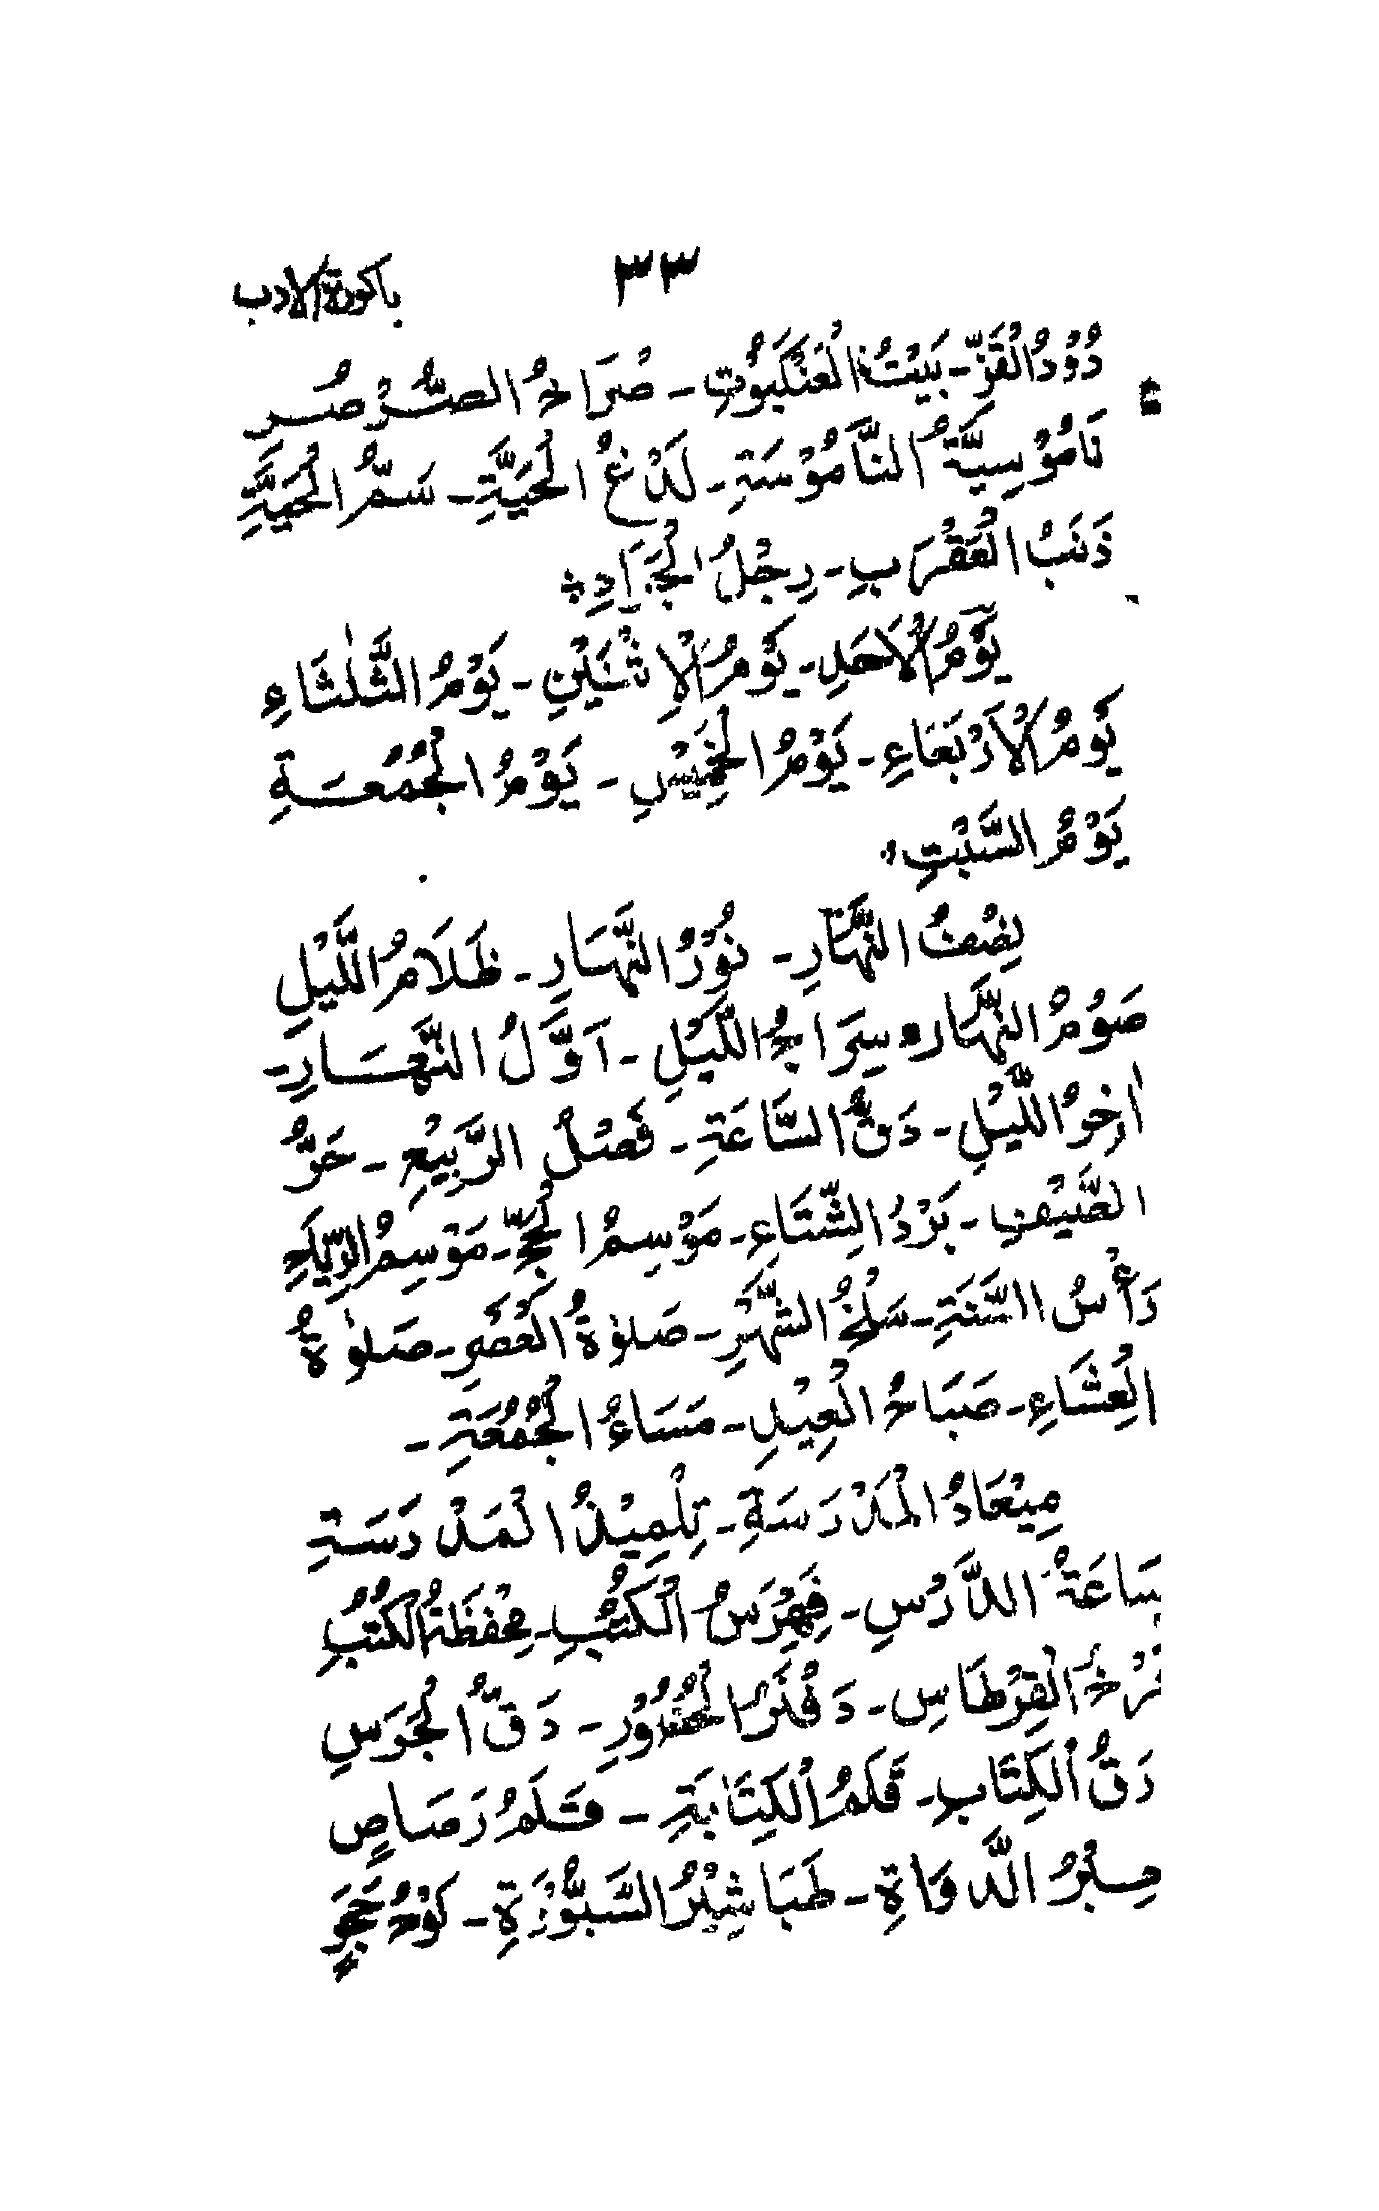 باكورة الادب ٣٣
دُوْدُ الْقَزِّ - بَيْتُ الْعَنْكَبُوْتِ - صُرَاخُ الصُّرْصُرِ
نَامُوْسِيَّةُ النَّامُوْسَةِ - لَدْغُ الْحَيَّةِ - سَمُّ الْحَيَّةِ
ذَنَبُ الْعَقْرَبِ - رِجْلُ الْجَرَادِ
يَوْمُ الْاَحَدِ - يَوْمُ الْاِثْنَيْنِ - يَوْمُ الثَّلٰثَاءِ
يَوْمُ الْاَرْبَعَاءِ - يَوْمُ الْخَمِيْسِ - يَوْمُ الْجُمُعَةِ
يَوْمُ السَّبْتِ
نِصْفُ النَّهَارِ - نُوْرُ النَّهَارِ - ظَلَامُ اللَّيْلِ
صَوْمُ النَّهَارِ - سِرَاجُ اللَّيْلِ - اَوَّلُ النَّهَارِ -
اٰخِرُ اللَّيْلِ - دَقُّ السَّاعَةِ - فَصْلُ الرَّبِيْعِ - حَرُّ
الصَّيْفِ - بَرْدُ الشِّتَاءِ - مَوْسِمُ الْحَجِّ - مَوْسِمُ
رَأْسُ السَّنَةِ - سَلْخُ الشَّهْرِ - صَلٰوةُ الْعَصْرِ - صَلٰوةُ
الْعِشَاءِ - صَبَاحُ الْعِيْدِ - مَسَاءُ الْجُمُعَةِ -
مِيْعَادُ الْمَدْرَسَةِ - تِلْمِيْذُ الْمَدْرَسَةِ
سَاعَةُ الدَّرْسِ - فِهْرِسُ الْكُتُبِ - مِحْفَظَةُ الْكُتُبِ
فَرْخُ الْقِرْطَاسِ - دَفْتَرُ الْحُضُوْرِ - دَقُّ الْجَرَسِ
دَقُّ الْكِتَابِ - قَلَمُ الْكِتَابَةِ - قَلَمُ رَصَاصٍ
حِبْرُ الدَّوَاةِ - طَبَاشِيْرُ السَّبُّوْرَةِ - لَوْحُ حَجَرٍ